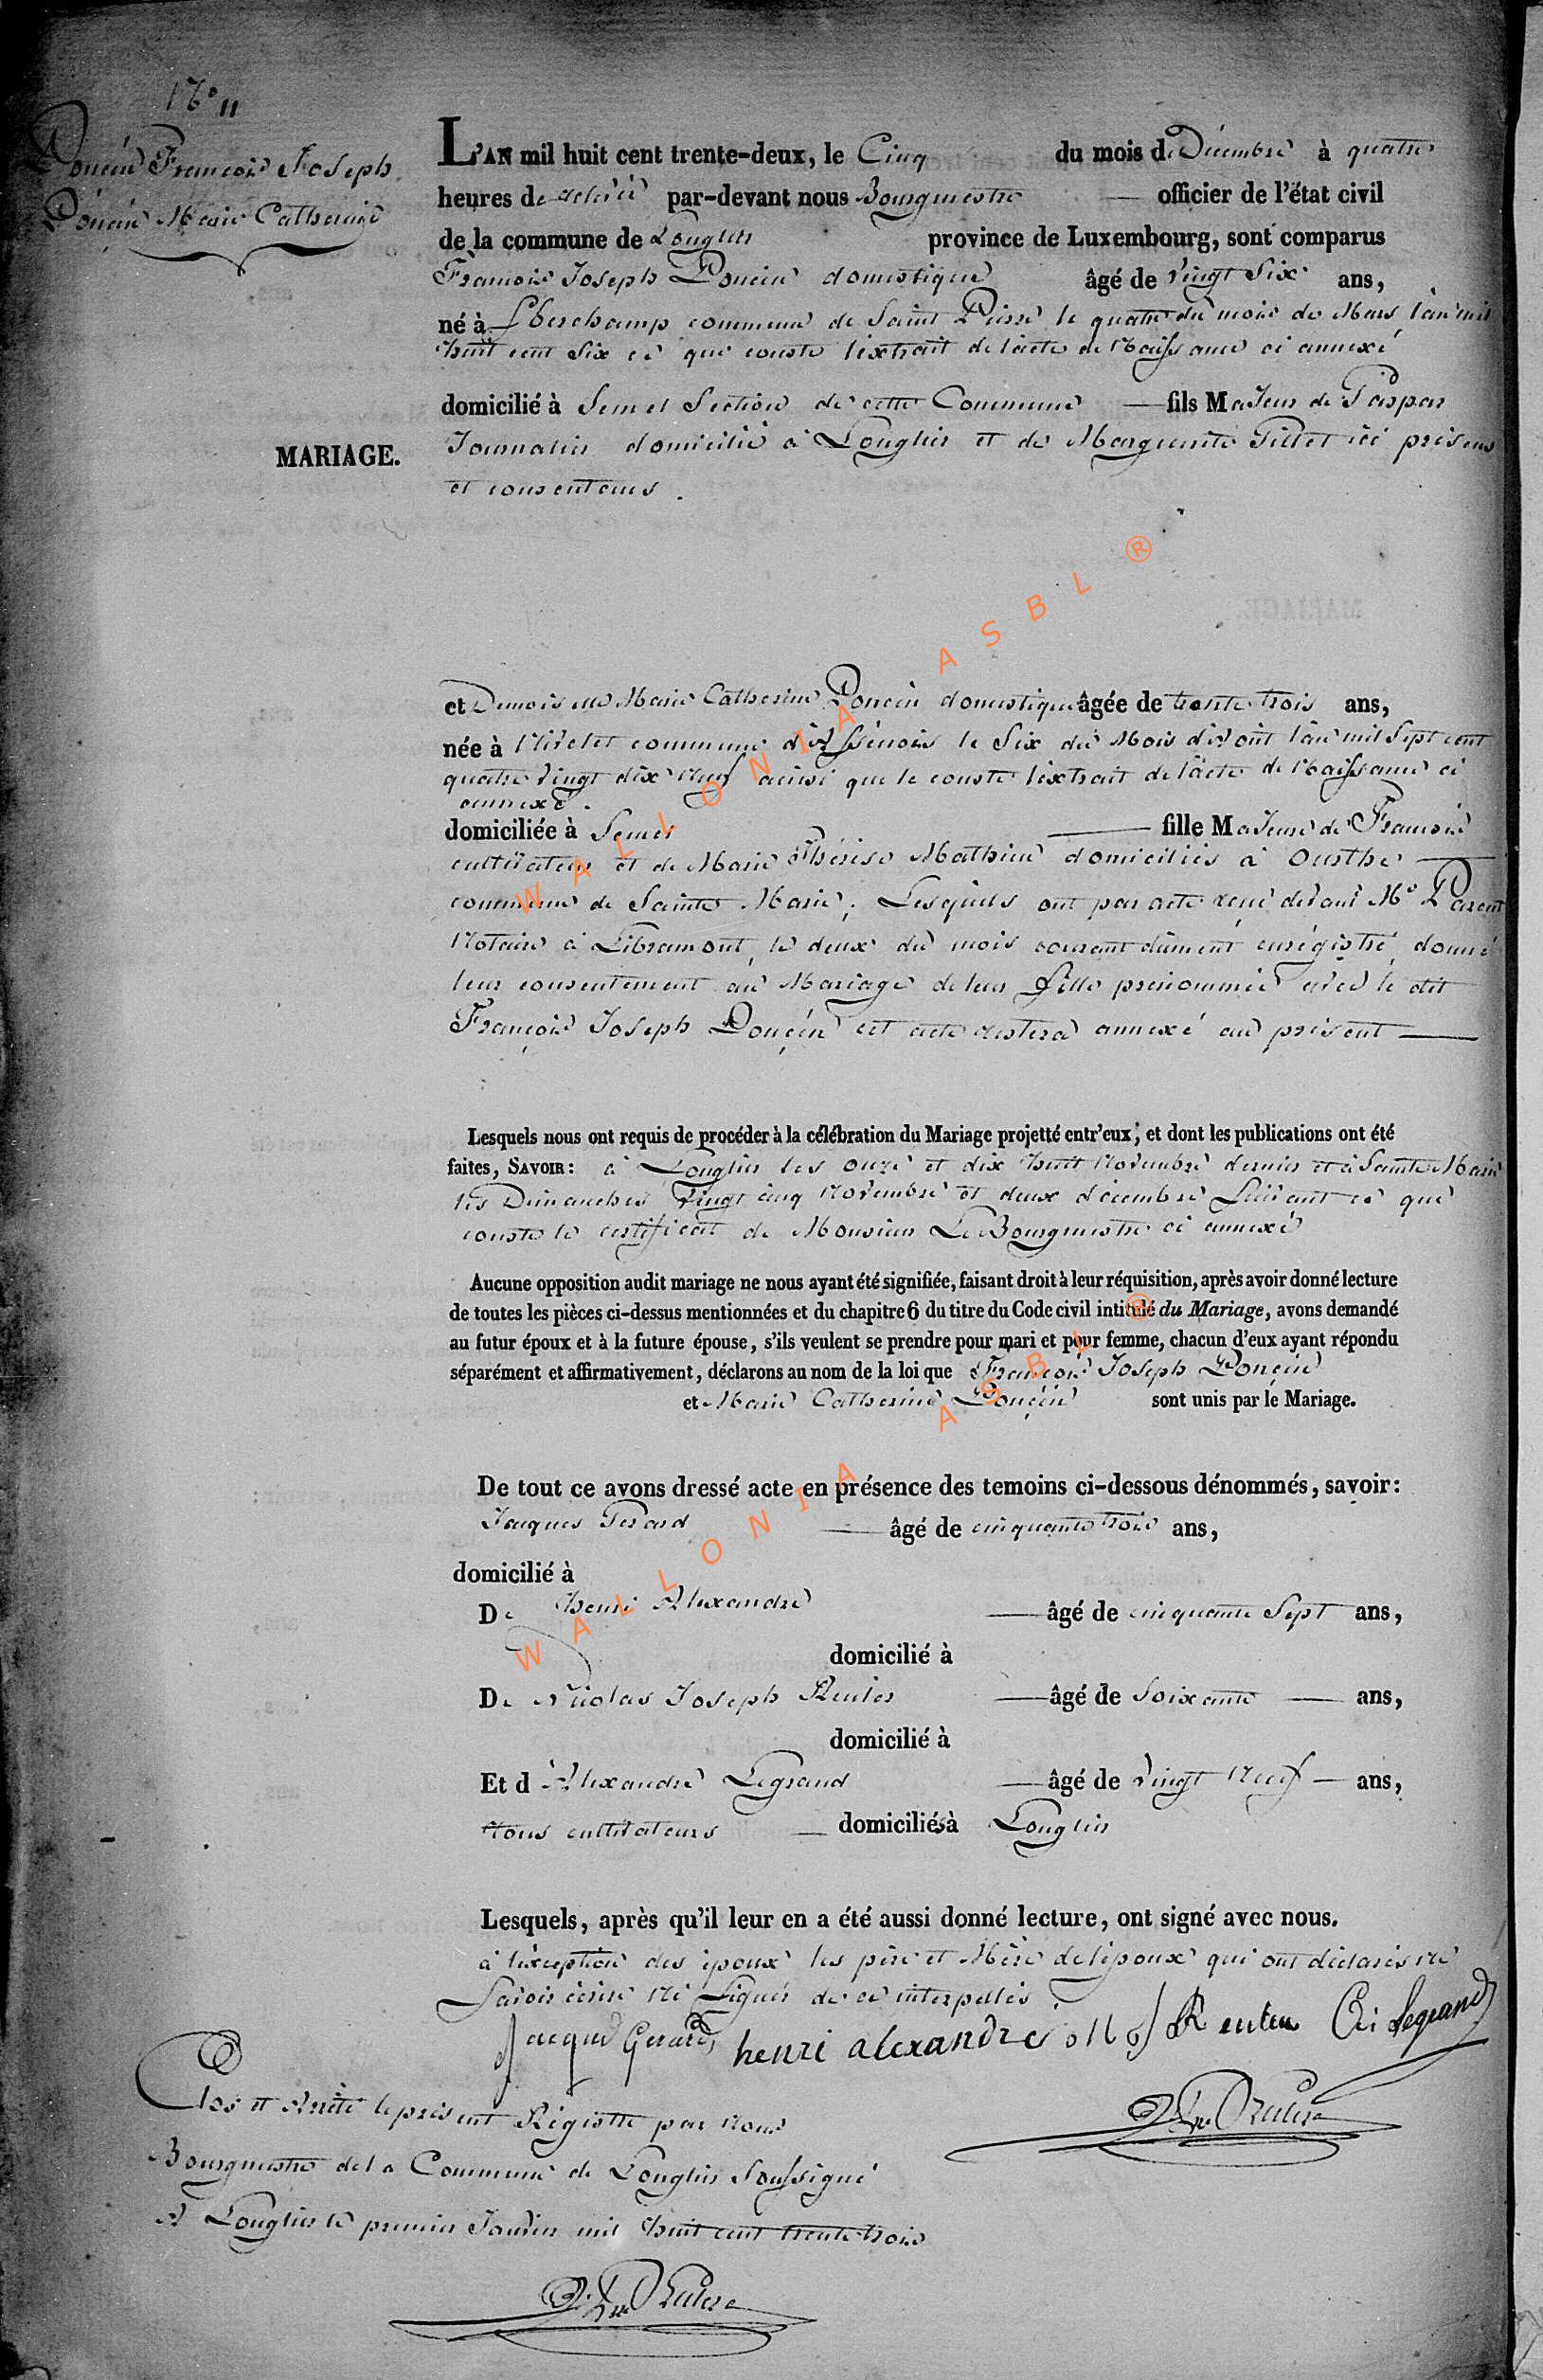 N° 11
Poncin François Joseph
Poncin Marie Catherine
MARIAGE.
L'AN mil huit cent trente-deux, le Cinq du mois de Décembre à quatre
heures de relevée par-devant nous Bourgmestre officier de l'état civil
de la commune de Longlier province de Luxembourg, sont comparus
François Joseph Poncin domestique âgé de vingt Six ans,
né à Eberchamp commune de Saint Pierre le quatre du mois de Mars l'an mil
huit cent Six ce que conste l'extrait de l'acte de Naissance ci annexé
domicilié à Semel Section de cette Commune fils Majeur de Gaspar
Journalier domicilié à Longlier et de Marguerite Gillet ici présens
et consentans.
et Demoiselle Marie Catherine Poncin domestique âgée de trente trois ans,
née à Nivelet commune d'Assenois le Six du Mois d'Août l'an mil Sept cent
quatre vingt dix Neuf ainsi que le conste l'extrait de l'acte de Naissance ci
annexé.
domiciliée à Semel fille Majeure de François
cultivateur et de Marie Thérèse Mathieu domiciliés à Ourthe
commune de Sainte Marie; Lesquels ont par acte reçu devant Me Parent
Notaire à Libramont, le deux du mois courant dûment enrégistré, donné
leur consentement au Mariage de leur fille prénommée avec le dit
François Joseph Ponçin cet acte restera annexé au présent
Lesquels nous ont requis de procéder à la célébration du Mariage projetté entr'eux, et dont les publications ont été
faites, SAVOIR: à Longlier les onze et dix huit Novembre dernier et à Sainte Marie
les Dimanches vingt cinq Novembre et deux décembre Suivant ce que
conste le certificat de Monsieur Le Bourgmestre ci annexé
Aucune opposition audit mariage ne nous ayant été signifiée, faisant droit à leur réquisition, après avoir donné lecture
de toutes les pièces ci-dessus mentionnées et du chapitre 6 du titre du Code civil intitulé du Mariage, avons demandé
au futur époux et à la future épouse, s'ils veulent se prendre pour mari et pour femme, chacun d'eux ayant répondu
séparément et affirmativement, déclarons au nom de la loi que François Joseph Ponçin
et Marie Catherine Ponçin sont unis par le Mariage.
De tout ce avons dressé acte en présence des temoins ci-dessous dénommés, savoir:
Jacques Gerard âgé de cinquante trois ans,
domicilié à
De henri Alexandre âgé de cinquante Sept ans,
domicilié à
De Nicolas Joseph Reuter âgé de Soixante ans,
domicilié à
Et d'Alexandre Legrand âgé de vingt Neuf ans,
tous cultivateurs domiciliés à Longlier
Lesquels, après qu'il leur en a été aussi donné lecture, ont signé avec nous.
à l'exception des époux les père et Mère de l'époux qui ont déclarés ne
Savoir écrire Ni Signer de ce interpellés.
Jacque Gerard henri alexandre Reuter Legrand
Clos et Arrêté le présent Régistre par Nous
Bourgmestre de la Commune de Longlier Soussigné
A Longlier le premier Janvier mil huit cent trente trois
WALLONIA ASBL ®
WALLONIA ASBL ®